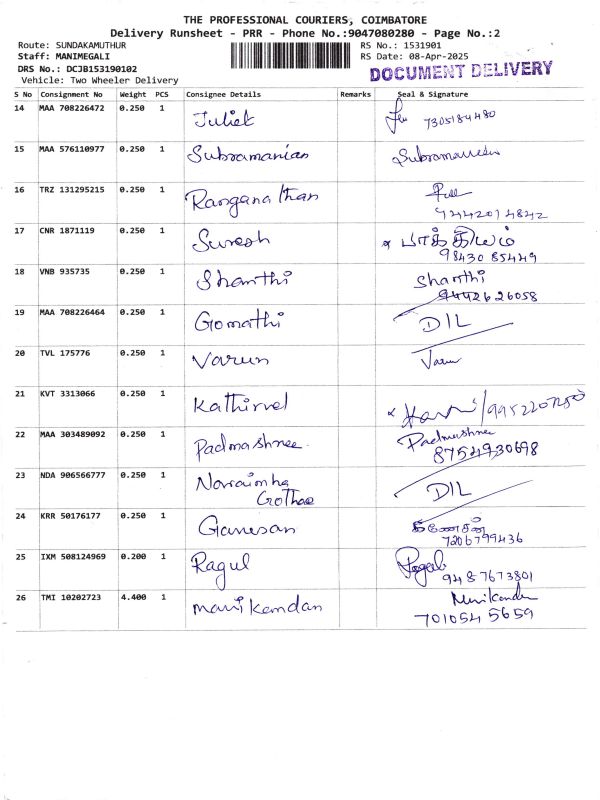 THE PROFESSIONAL COURIERS, COIMBATORE
Delivery Runsheet - PRR - Phone No.:9047080280 - Page No.:2
Route: SUNDAKAMUTHUR RS No.: 1531901
Staff: MANIMEGALI RS Date: 08-Apr-2025
DRS No.: DCJB153190102 DOCUMENT DELIVERY
Vehicle: Two Wheeler Delivery
S No Consignment No Weight PCS Consignee Details Remarks Seal & Signature
14 MAA 708226472 0.250 1 Juliet 7305184480
15 MAA 576110977 0.250 1 Subramanian
16 TRZ 131295215 0.250 1 Ranganathan
9442014842
17 CNR 1871119 0.250 1 Suresh பாக்கியம்
98430 85449
18 VNB 935735 0.250 1 Shanthi Shanthi
9442626058
19 MAA 708226464 0.250 1 Gomathi D/L
20 TVL 175776 0.250 1 Varun Varun
21 KVT 3313066 0.250 1 Kathirvel
22 MAA 303489092 0.250 1 Padmashree Padmashree
8754930698
23 NDA 906566777 0.250 1 D/L
24 KRR 50176177 0.250 1 Ganesan கணேசன்
7206799436
25 IXM 508124969 0.200 1 Ragul Ragul
9487673801
26 TMI 10202723 4.400 1 Manikandan Manikandan
701054 5659